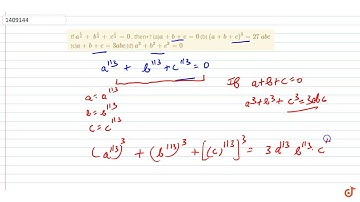 1409144
If a^{1/3} + b^{1/3} + c^{1/3} = 0, then+? (a) a + b + c = 0 (b) (a + b + c)^3 = 27 abc
(c) a + b + c = 3abc (d) a^3 + b^3 + c^3 = 0
a^{1/3} + b^{1/3} + c^{1/3} = 0
If a+b+c=0
a^3+b^3+c^3=3abc
a = a^{1/3}
b = b^{1/3}
c = c^{1/3}
(a^{1/3})^3 + (b^{1/3})^3 + [(c)^{1/3}]^3 = 3 a^{1/3} b^{1/3} . c